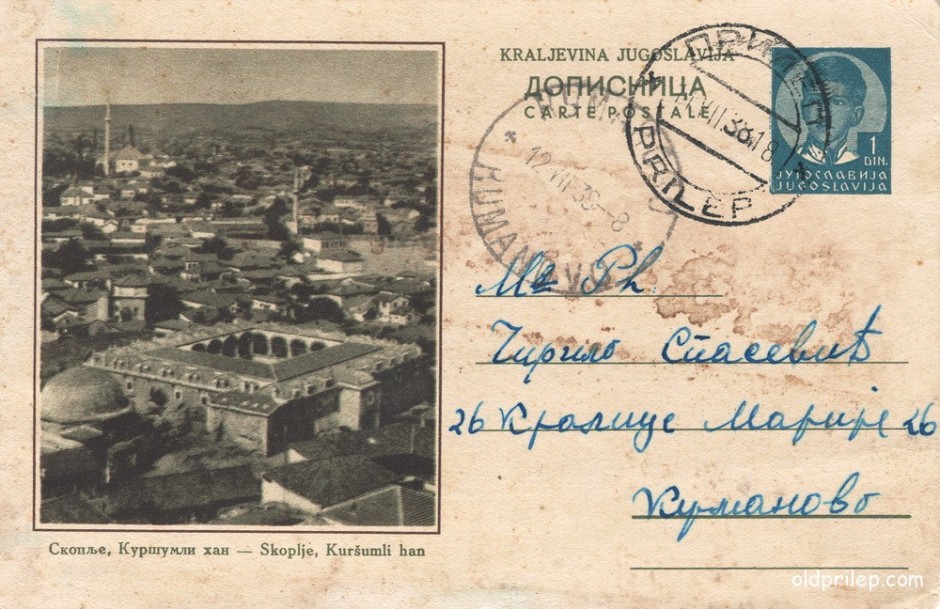 KRALJEVINA JUGOSLAVIJA
ДОПИСНИЦА
CARTE POSTALE
ПРИЛЕП
VII 38 18
PRILEP
12 VII 38-8
KUMANOVO
1
DIN.
ЈУГОСЛАВИЈА
JUGOSLAVIJA
Mr Ph.
Чирило Спасевић
26 Кралице Марије 26
Куманово
Скопље, Куршумли хан — Skoplje, Kuršumli han
oldprilep.com